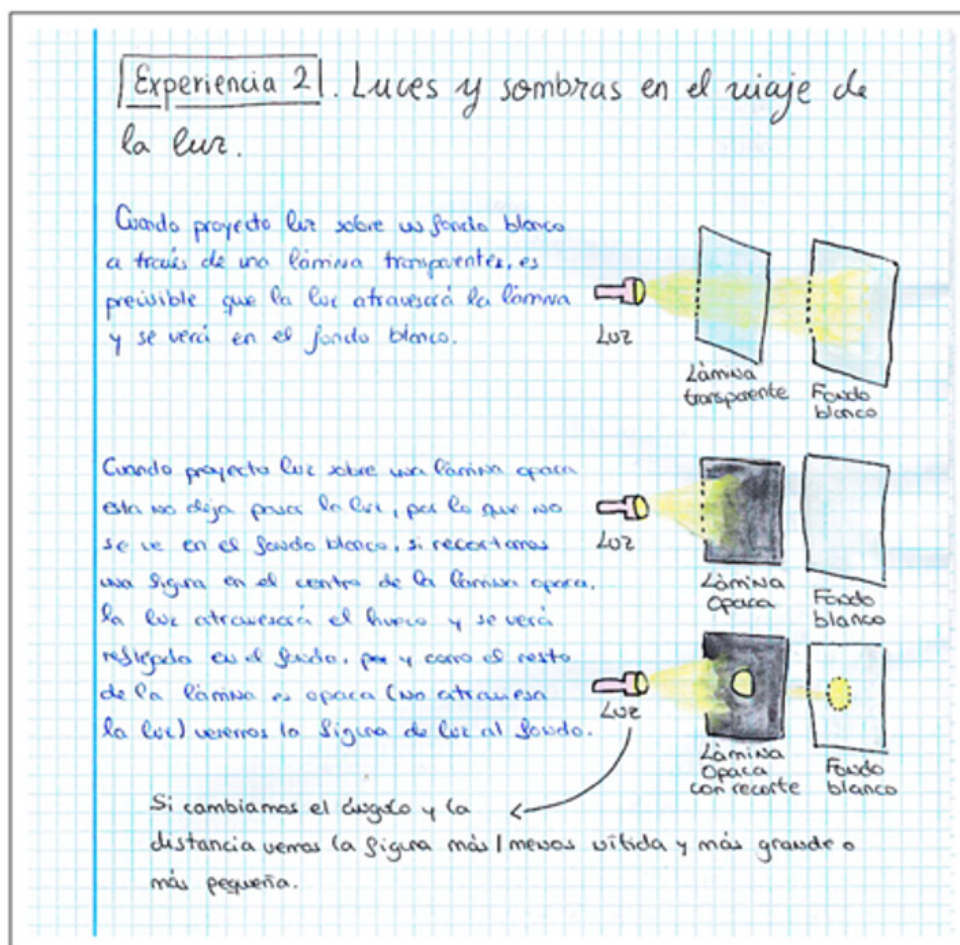 Experiencia 2. Luces y sombras en el viaje de
la luz.
Cuando proyecto luz sobre un fondo blanco
a través de una lámina transparentes, es
previsible que la luz atravesará la lámina
y se verá en el fondo blanco.
Luz
Lámina
transparente
Fondo
blanco
Cuando proyecto luz sobre una lámina opaca
esta no deja pasar la luz, por lo que no
se ve en el fondo blanco, si recortamos
una figura en el centro de la lámina opaca,
la luz atravesará el hueco y se verá
reflejada en el fondo, por y como el resto
de la lámina es opaca (no atraviesa
la luz) veremos la figura de luz al fondo.
Luz
Lámina
Opaca
Fondo
blanco
Luz
Lámina
Opaca
con recorte
Fondo
blanco
Si cambiamos el ángulo y la
distancia vemos la figura más/menos nítida y más grande o
más pequeña.